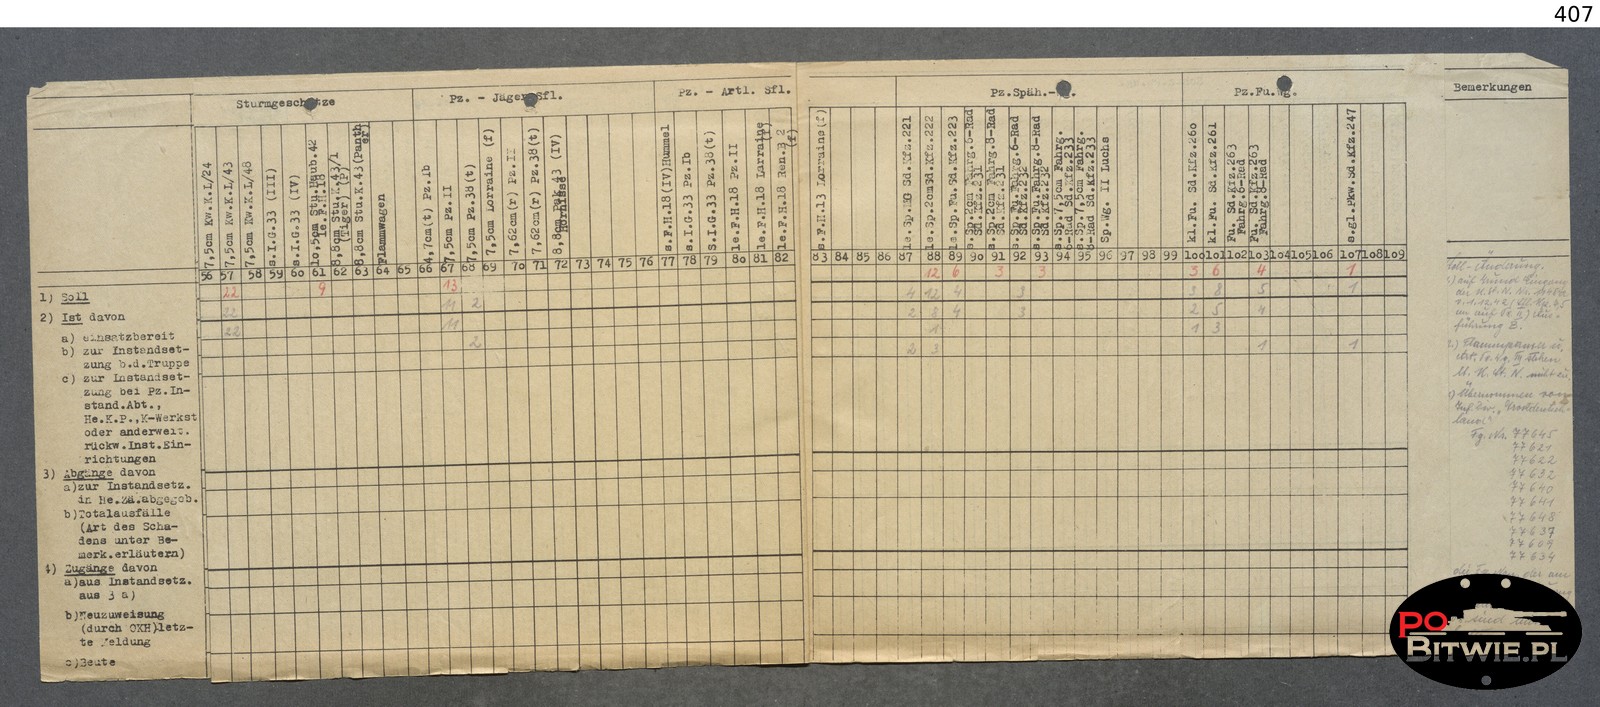 407
Sturmgeschütze
Pz. - Jäger Sfl.
Pz. - Artl. Sfl.
Pz.Späh.-Wg.
Pz.Fu.Wg.
Bemerkungen
7,5cm Kw.K.L/24
7,5cm Kw.K.L/43
7,5cm Kw.K.L/48
s.I.G.33 (III)
s.I.G.33 (IV)
10,5cm Stu.Haub.42
le.F.H.18
8,8cm Stu.K.43/1
(Tiger,(P)
8,8cm Stu.K.43(Panther)
Flammwagen
4,7cm(t) Pz.Ib
7,5cm Pz.II
7,5cm Pz.38(t)
7,5cm Loraine (f)
7,62cm(r) Pz.II
7,62cm(r) Pz.38(t)
8,8cm Pak 43 (IV)
Hornisse
s.F.H.18(IV)Hummel
s.I.G.33 Pz.Ib
s.I.G.33 Pz.38(t)
le.F.H.18 Pz.II
le.F.H.18 Larraine (f)
le.F.H.18 Ren.B 2 (f)
s.F.H.13 Lorraine(f)
le.Sp.MG Sd.Kfz.221
le.Sp.2cmSd.Kfz.222
le.Sp.Fu.Sd.Kfz.223
s.Sp.2cm Fahrg.6-Rad
Sd.Kfz.231
s.Sp.2cm Fahrg.8-Rad
Sd.Kfz.231
s.Sp.Fu.Fahrg.6-Rad
Sd.Kfz.232
s.Sp.Fu.Fahrg.8-Rad
Sd.Kfz.232
s.Sp.7,5cm Fahrg.
6-Rad Sd.Kfz.233
s.Sp.7,5cm Fahrg.
8-Rad Sd.Kfz.233
Sp.Wg. II Luchs
kl.Fu. Sd.Kfz.260
kl.Fu. Sd.Kfz.261
Fu. Sd.Kfz.263
Fahrg.6-Rad
Fu. Sd.Kfz.263
Fahrg.8-Rad
s.gl.Pkw.Sd.Kfz.247
56 57 58 59 60 61 62 63 64 65 66 67 68 69 70 71 72 73 74 75 76 77 78 79 80 81 82 83 84 85 86 87 88 89 90 91 92 93 94 95 96 97 98 99 100 101 102 103 104 105 106 107 108 109
12 6 3 3 3 6 4 1
1) Soll
22 9 13
4 12 4 3 3 8 5 1
2) Ist davon
22 11 2
2 8 4 3 2 5 4
a) einsatzbereit
22 11
1 1 3
b) zur Instandset-
zung b.d.Truppe
2
2 3 1 1
c) zur Instandset-
zung bei Pz.In-
stand.Abt.,
He.K.P.,K-Werkst
oder anderweit.
rückw.Inst.Ein-
richtungen
3) Abgänge davon
a)zur Instandsetz.
in He.Za.abgegeb.
b)Totalausfälle
(Art des Scha-
dens unter Be-
merk.erläutern)
4) Zugänge davon
a)aus Instandsetz.
aus 3 a)
b)Neuzuweisung
(durch OKH)letz-
te Meldung
c)Beute
Soll-Änderung.
führung B.
Übernommen vom
Inf. Div. "Grossdeutsch-
land"
Fg. Nr. 77645
77621
77622
77632
77640
77641
77648
77637
77609
77634
PO
BITWIE.PL